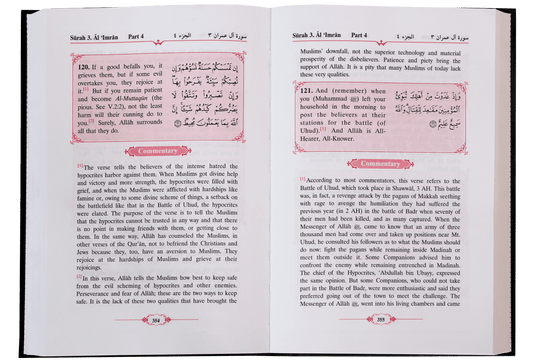 Sūrah 3. Āl 'Imrān Part 4 الجزء ٤ سورة آل عمران ٣
120. If a good befalls you, it
grieves them, but if some evil
overtakes you, they rejoice at
it.[1] But if you remain patient
and become Al-Muttaqūn (the
pious. See V.2:2), not the least
harm will their cunning do to
you.[2] Surely, Allāh surrounds
all that they do.
إِن تَمْسَسْكُمْ حَسَنَةٌ تَسُؤْهُمْ وَإِن
تُصِبْكُمْ سَيِّئَةٌ يَفْرَحُوا بِهَا
وَإِن تَصْبِرُوا وَتَتَّقُوا لَا
يَضُرُّكُمْ كَيْدُهُمْ شَيْئًا إِنَّ
اللَّهَ بِمَا يَعْمَلُونَ مُحِيطٌ
Commentary
[1] The verse tells the believers of the intense hatred the
hypocrites harbor against them. When Muslims got divine help
and victory and more strength, the hypocrites were filled with
grief, and when the Muslims were afflicted with hardships like
famine or, owing to some divine scheme of things, a setback on
the battlefield like that in the Battle of Uhud, the hypocrites
were elated. The purpose of the verse is to tell the Muslims
that the hypocrites cannot be trusted in any way and that there
is no point in making friends with them, or getting close to
them. In the same way, Allāh has counseled the Muslims, in
other verses of the Qur'ān, not to befriend the Christians and
Jews because they, too, have an aversion to Muslims. They
rejoice at the hardships of Muslims and grieve at their
rejoicings.
[2] In this verse, Allāh tells the Muslims how best to keep safe
from the evil scheming of hypocrites and other enemies.
Perseverance and fear of Allāh; these are the two ways to keep
safe. It is the lack of these two qualities that have brought the
354
Sūrah 3. Āl 'Imrān Part 4 الجزء ٤ سورة آل عمران ٣
Muslims' downfall, not the superior technology and material
prosperity of the disbelievers. Patience and piety bring the
support of Allāh. It is a pity that many Muslims of today lack
these very qualities.
121. And (remember) when
you (Muhammad ﷺ) left your
household in the morning to
post the believers at their
stations for the battle (of
Uhud).[1] And Allāh is All-
Hearer, All-Knower.
وَإِذْ غَدَوْتَ مِنْ أَهْلِكَ تُبَوِّئُ
الْمُؤْمِنِينَ مَقَاعِدَ لِلْقِتَالِ وَاللَّهُ
سَمِيعٌ عَلِيمٌ
Commentary
[1] According to most commentators, this verse refers to the
Battle of Uhud, which took place in Shawwāl, 3 AH. This battle
was, in fact, a revenge attack by the pagans of Makkah seething
with rage to avenge the humiliation they had suffered the
previous year (in 2 AH) in the battle of Badr when seventy of
their men had been killed, and as many captured. When the
Messenger of Allāh ﷺ, came to know that an army of three
thousand men had come over and taken up positions near Mt.
Uhud, he consulted his followers as to what the Muslims should
do now: fight the pagans while remaining inside Madinah or
meet them outside it. Some Companions advised him to
confront the enemy while remaining entrenched in Madinah.
The chief of the Hypocrites, 'Abdullah bin Ubayy, expressed
the same opinion. But some Companions, who could not take
part in the Battle of Badr, were more enthusiastic and said they
preferred going out of the town to meet the challenge. The
Messenger of Allāh ﷺ, went into his living chambers and came
355